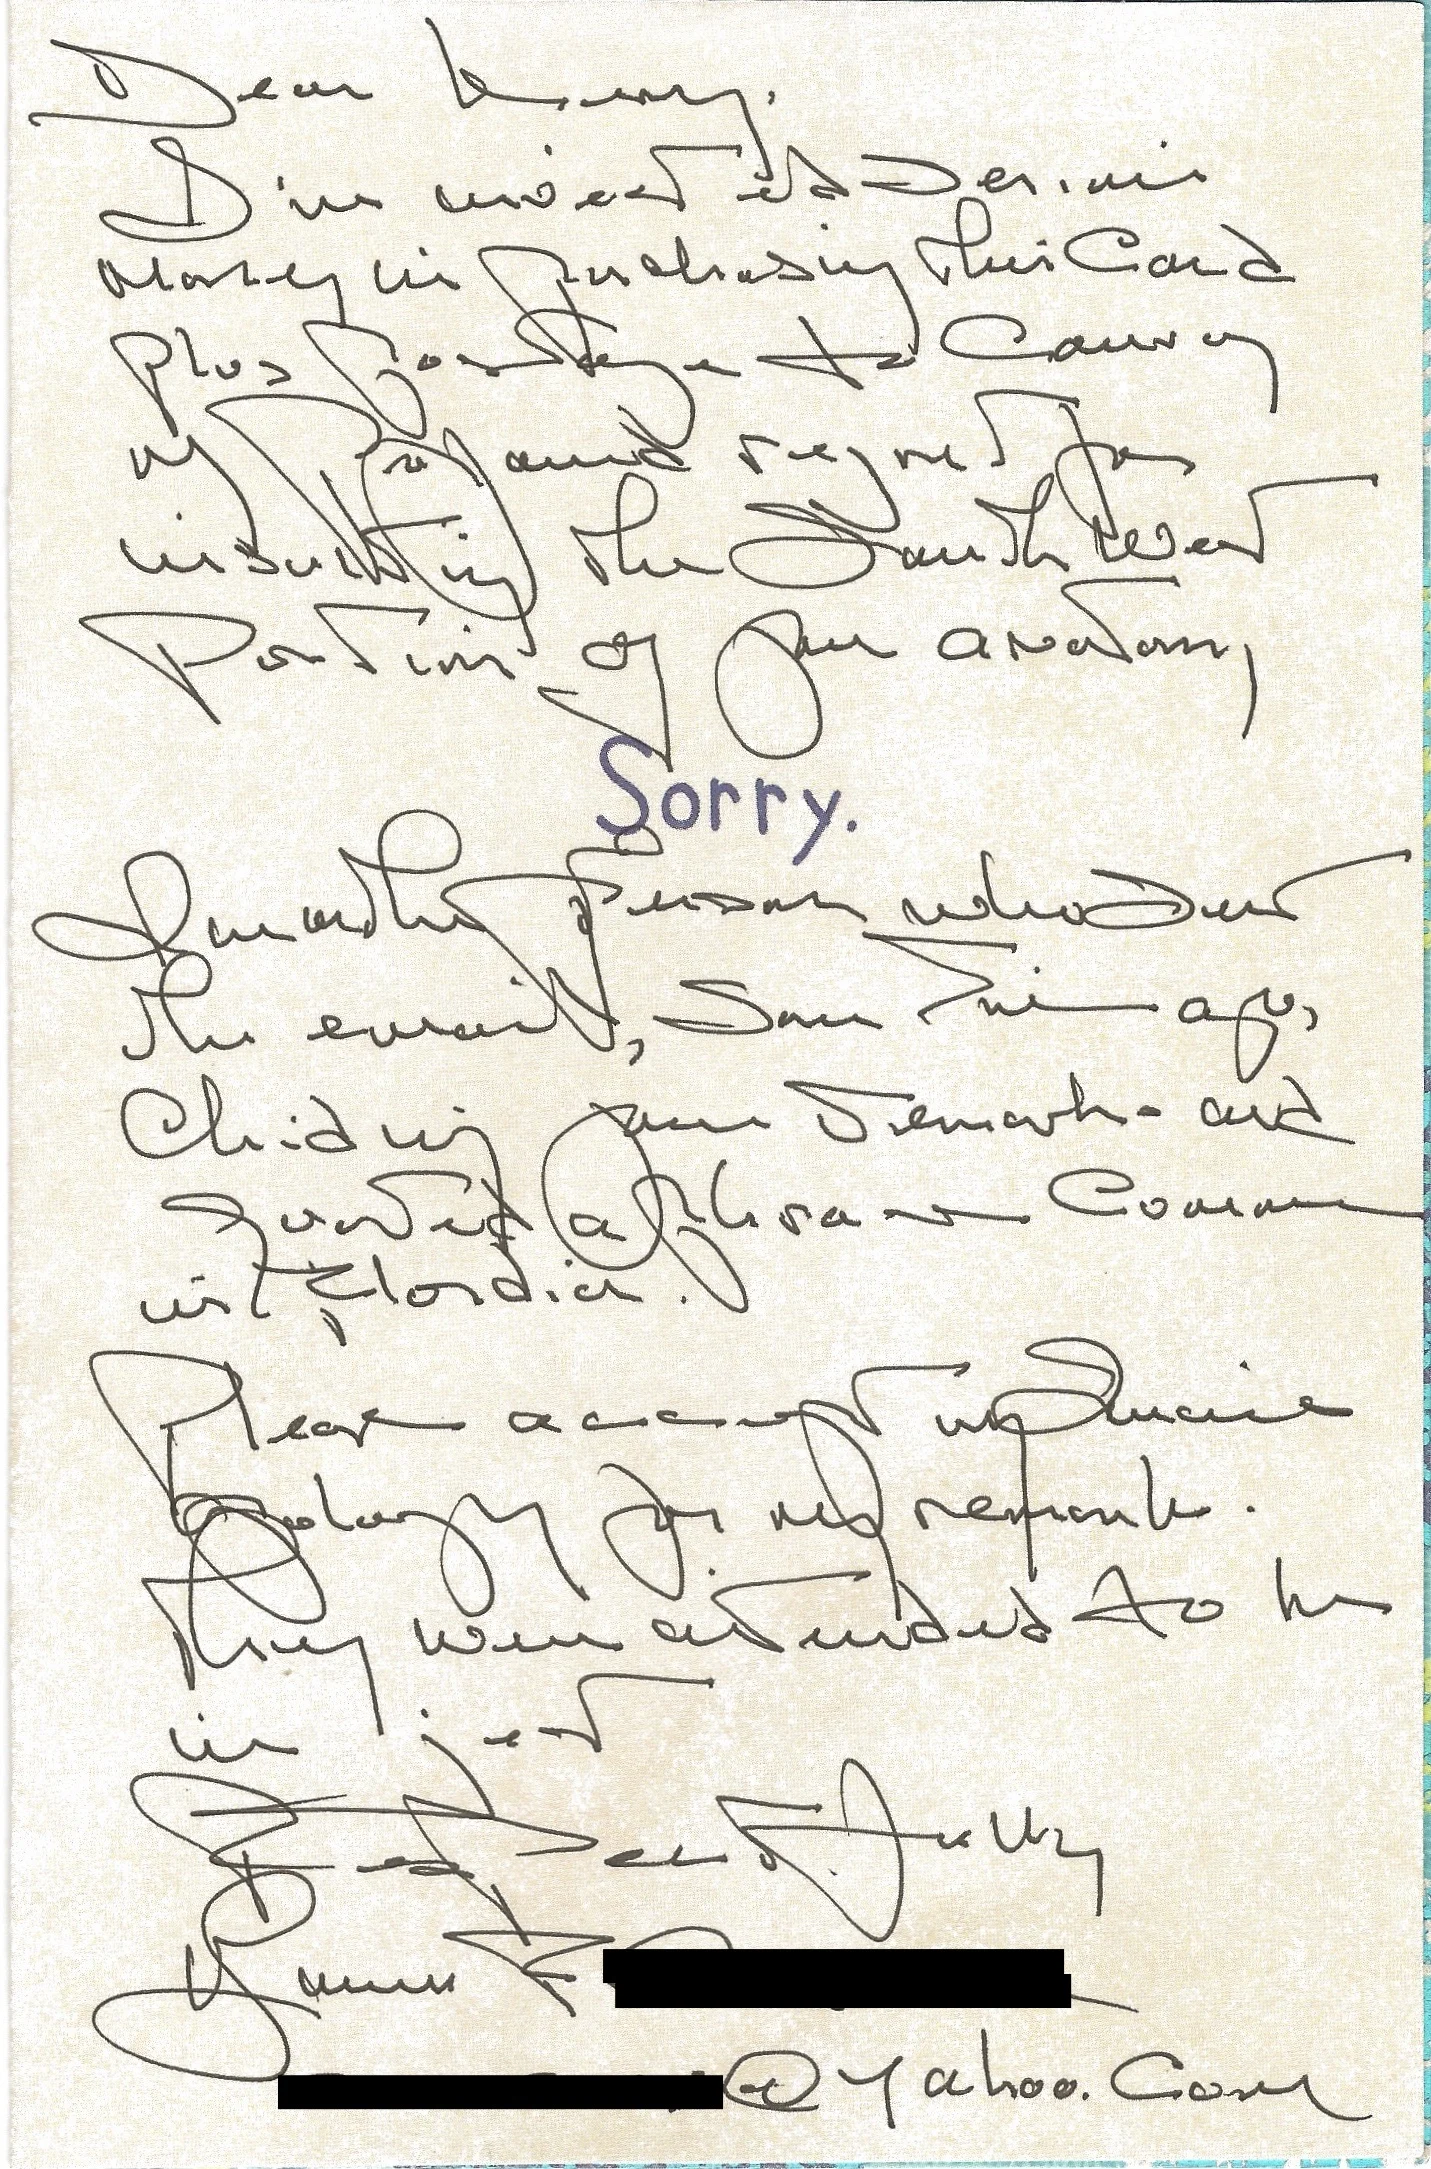 Dear
I've invested serious
money in purchasing this Card
plus postage to Convey
my and regret for
insulting the South West
Portion of your anatomy
Sorry.
I'm the person who sent
the email, some time ago,
Chiding your remark - and
quoted a phrase Common
in Flordia.
Please accept my Sincere
apology for my remark.
They were intended to be
in jest
Yahoo.Com